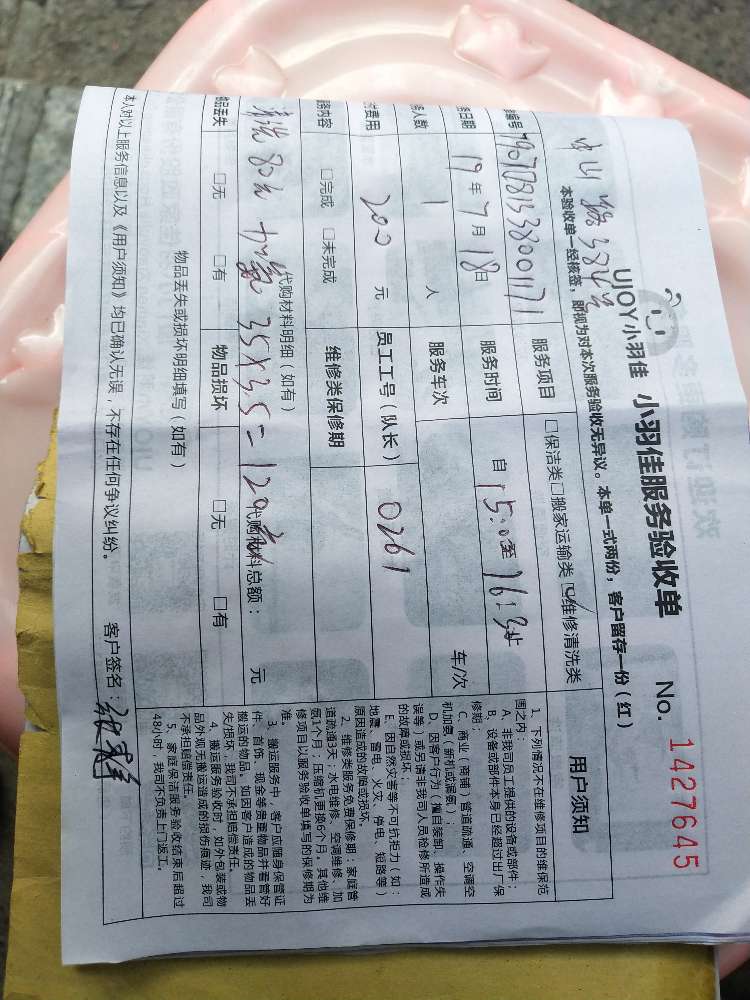 UJOY小羽佳 小羽佳服务验收单 No. 1427645
本验收单一经核签，即视为对本次服务验收无异议。本单一式两份，客户留存一份(红)
中山路384号
编号 服务项目 □保洁类□搬家运输类☑维修清洗类
日期 19年7月18日 服务时间 自15:0至16:3
人数 1 人 服务车次 车/次
费用 200 元 员工工号(队长) 0261
内容 □完成 □未完成 维修类保修期
代购材料明细(如有)
清洗80元 加氨 35X3.5=120元 代购材料总额: 元
物品丢失 □无 □有 物品损坏 □无 □有
物品丢失或损坏明细填写(如有)
本人对以上服务信息以及《用户须知》均已确认无误，不存在任何争议纠纷。 客户签名:
用户须知
1、下列情况不在维修项目的维保范
围之内:
A、非我司员工提供的设备或部件;
B、设备或部件本身已经超过出厂保
修期;
C、商业(商铺)管道疏通、空调空
机加氨(新机或漏氨);
D、因客户行为(擅自装卸、操作失
误等)或另请非我司人员检修所造成
的故障或损坏;
E、因自然灾害等不可抗拒力(如:
地震、雷电、火灾、停电、短路等)
原因造成的故障或损坏
2、维修类服务免费保修期:家庭管
道疏通3天;水电维修、空调维修、加
氨1个月;压缩机更换6个月。其他维
修项目以服务验收单填写的保修期为
准。
3、搬运服务中，客户应随身保管证
件、首饰、现金等贵重物品并看管好
搬运的物品。如因客户造成的物品丢
失/损坏，我司不承担赔偿责任。
4、搬运服务验收时，如外包装或物
品外观无搬运造成的损伤痕迹，我司
不承担赔偿责任。
5、家庭保洁服务验收结束后超过
48小时，我司不负责上门返工。